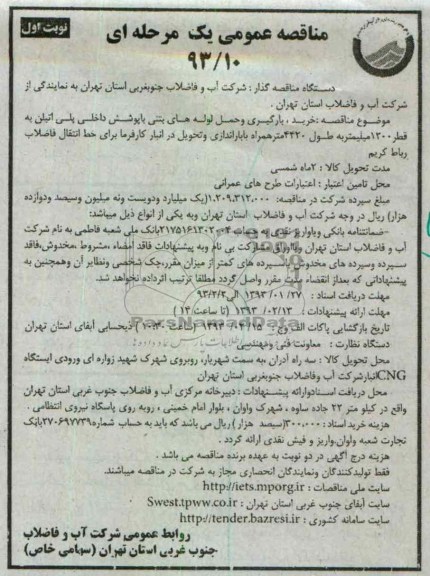 نوبت اول
مناقصه عمومی یک مرحله ای
۹۳/۱۰
دستگاه مناقصه گذار : شرکت آب و فاضلاب جنوبغربی استان تهران به نمایندگی از
شرکت آب و فاضلاب استان تهران .
موضوع مناقصه :خرید ، بارگیری وحمل لوله های بتنی باپوشش داخلی پلی اتیلن به
قطر۱۲۰۰میلیمتربه طول ۴۲۲۰مترهمراه باباراندازی وتحویل در انبار کارفرما برای خط انتقال فاضلاب
رباط کریم
مدت تحویل کالا : ۲ماه شمسی
محل تامین اعتبار : اعتبارات طرح های عمرانی
مبلغ سپرده شرکت در مناقصه: ۱.۲۰۹.۳۱۲.۰۰۰(یک میلیارد ودویست ونه میلیون وسیصد ودوازده
هزار) ریال در وجه شرکت آب و فاضلاب استان تهران وبه یکی از انواع ذیل میباشد:
-ضمانتنامه بانکی وباواریز نقدی به حساب بانک ملی شعبه فاطمی به نام شرکت
آب و فاضلاب استان تهران ویااوراق مشارکت بی نام وبه پیشنهادات فاقد امضاء ،مشروط ،مخدوش،فاقد
سپرده وسپرده های مخدوش ،سپرده های کمتر از میزان مقرر،چک شخصی ونظایر آن وهمچنین به
پیشنهاداتی که بعداز انقضاء مدت مقرر واصل گردد مطلقا ترتیب اثرداده نخواهد شد.
مهلت دریافت اسناد : ۱۳۹۳/۰۱/۲۷ الی ۹۳/۲/۲
مهلت ارائه پیشنهادات : ۱۳۹۳/۰۲/۱۳ (تا ساعت ۱۳ )
تاریخ بازگشایی پاکات آبفای استان تهران
دستگاه نظارت : معاونت فنی ومهندسی
محل تحویل کالا : سه راه آدران ،به سمت شهریار، روبروی شهرک شهید زواره ای ورودی ایستگاه
CNGانبارشرکت آب وفاضلاب جنوبغربی استان تهران
محل دریافت اسنادوارائه پیشنهادات : دبیرخانه مرکزی آب و فاضلاب جنوب غربی استان تهران
واقع در کیلو متر ۲۲ جاده ساوه ، شهرک واوان ، بلوار امام خمینی ، روبه روی پاسگاه نیروی انتظامی .
هزینه خرید اسناد :۳۰۰،۰۰۰(سیصد هزار) ریال می باشد که باید به حساب شماره۲۷۰۶۹۷۷۳۹بانک
تجارت شعبه واوان،واریز و فیش نقدی ارائه گردد .
هزینه درج آگهی در دو نوبت به عهده برنده مناقصه می باشد .
فقط تولیدکنندگان ونمایندگان انحصاری مجاز به شرکت در مناقصه میباشند.
سایت ملی مناقصات : http://iets.mporg.ir
سایت آبفای جنوب غربی استان تهران : Swest.tpww.co.ir
سایت سامانه کشوری : http://tender.bazresi.ir
روابط عمومی شرکت آب و فاضلاب
جنوب غربی استان تهران (سهامی خاص)